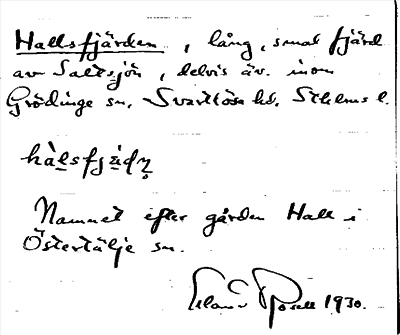 Hallsfjärden, lång, smal fjärd
av Saltsjön, delvis äv. inom
Grödinge sn, Svartlösa hd, Sthlms l.
hàl̠sfjä̀ḍn̥
Namnet efter gården Hall i
Östertälje sn.
Rosell 1930.